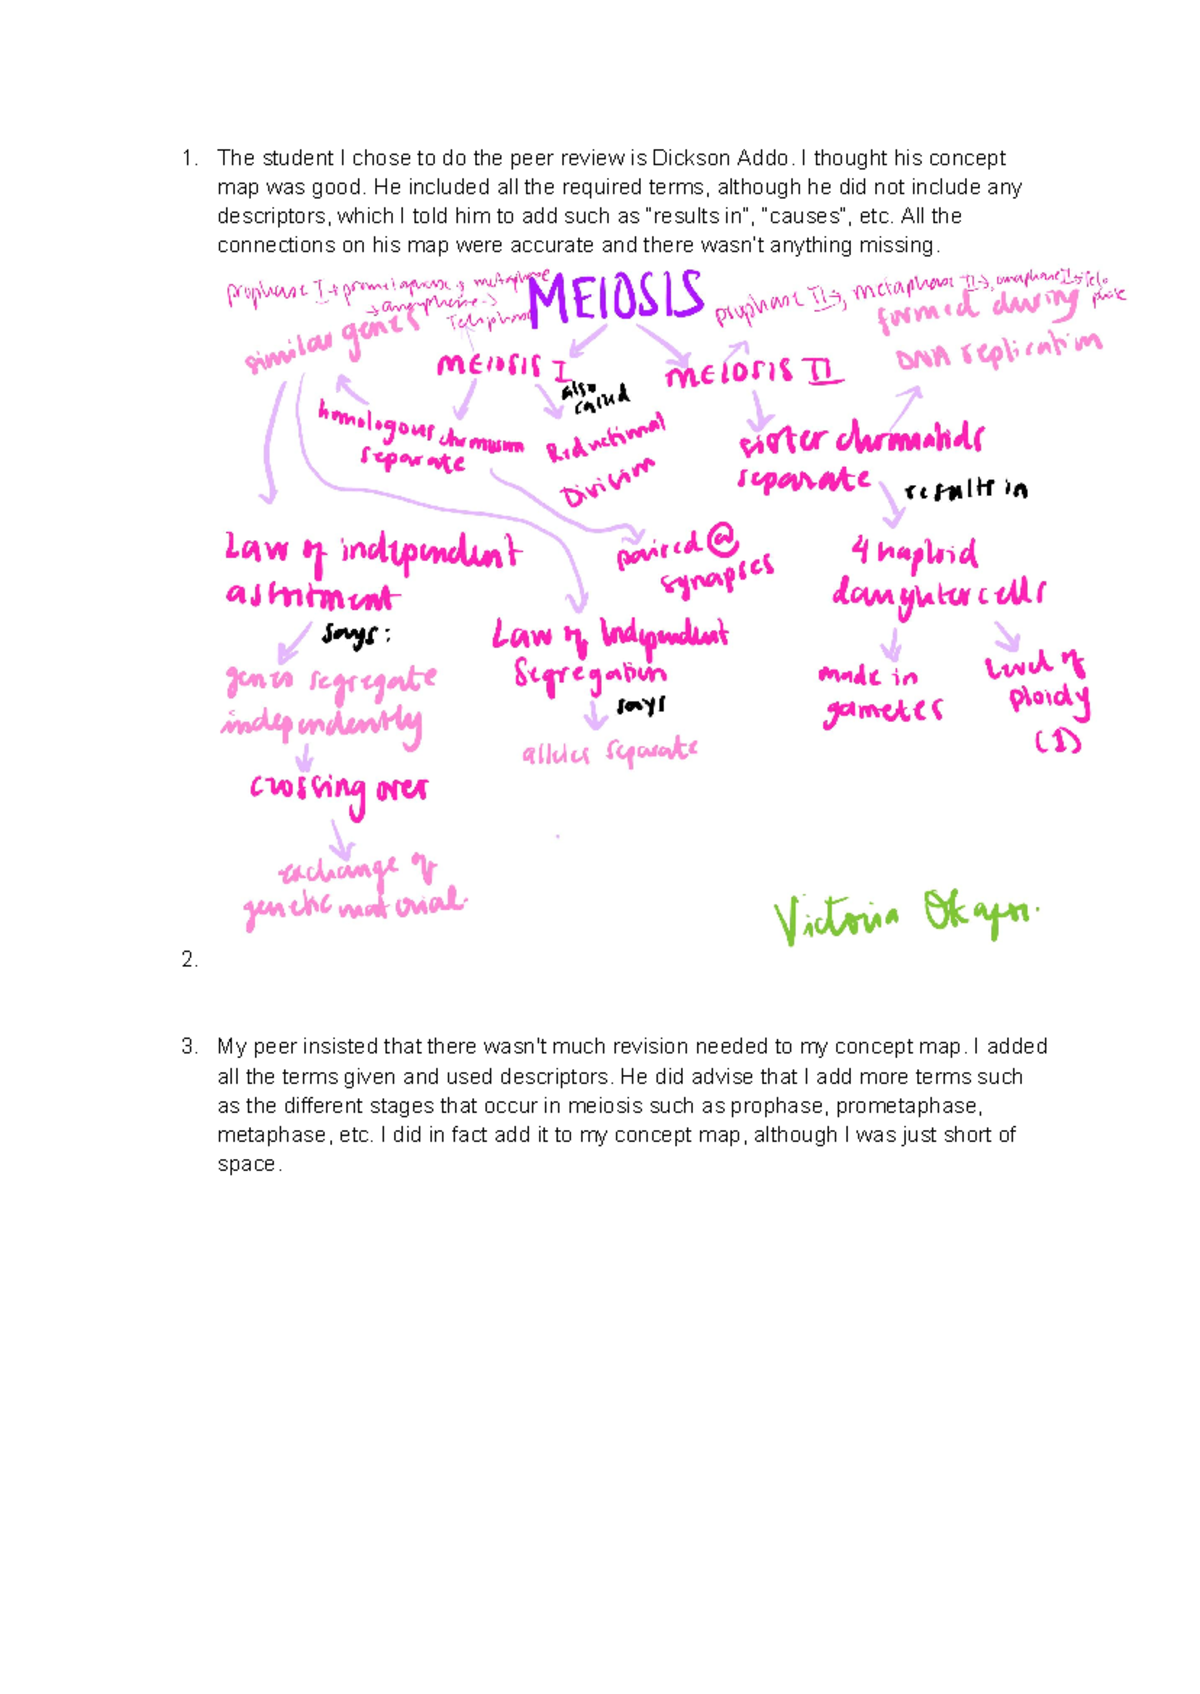 1. The student I chose to do the peer review is Dickson Addo. I thought his concept
map was good. He included all the required terms, although he did not include any
descriptors, which I told him to add such as "results in", "causes", etc. All the
connections on his map were accurate and there wasn't anything missing.
MEIOSIS
prophase I → prometaphase → metaphase
→ →
similar genes
prophase II →, metaphase II →, anaphase II → telo
phase
formed during
DNA replication
MEIOSIS I
also
called
MEIOSIS II
homologous chromosom
separate
Reductional
Division
sister chromatids
separate
results in
Law of independent
assortment
says:
paired @
synapses
4 haploid
daughter cells
Law of Independent
Segregation
says
genes segregate
independently
alleles separate
made in
gametes
Level of
ploidy
(1)
crossing over
exchange of
genetic material.
Victoria
2.
3. My peer insisted that there wasn't much revision needed to my concept map. I added
all the terms given and used descriptors. He did advise that I add more terms such
as the different stages that occur in meiosis such as prophase, prometaphase,
metaphase, etc. I did in fact add it to my concept map, although I was just short of
space.